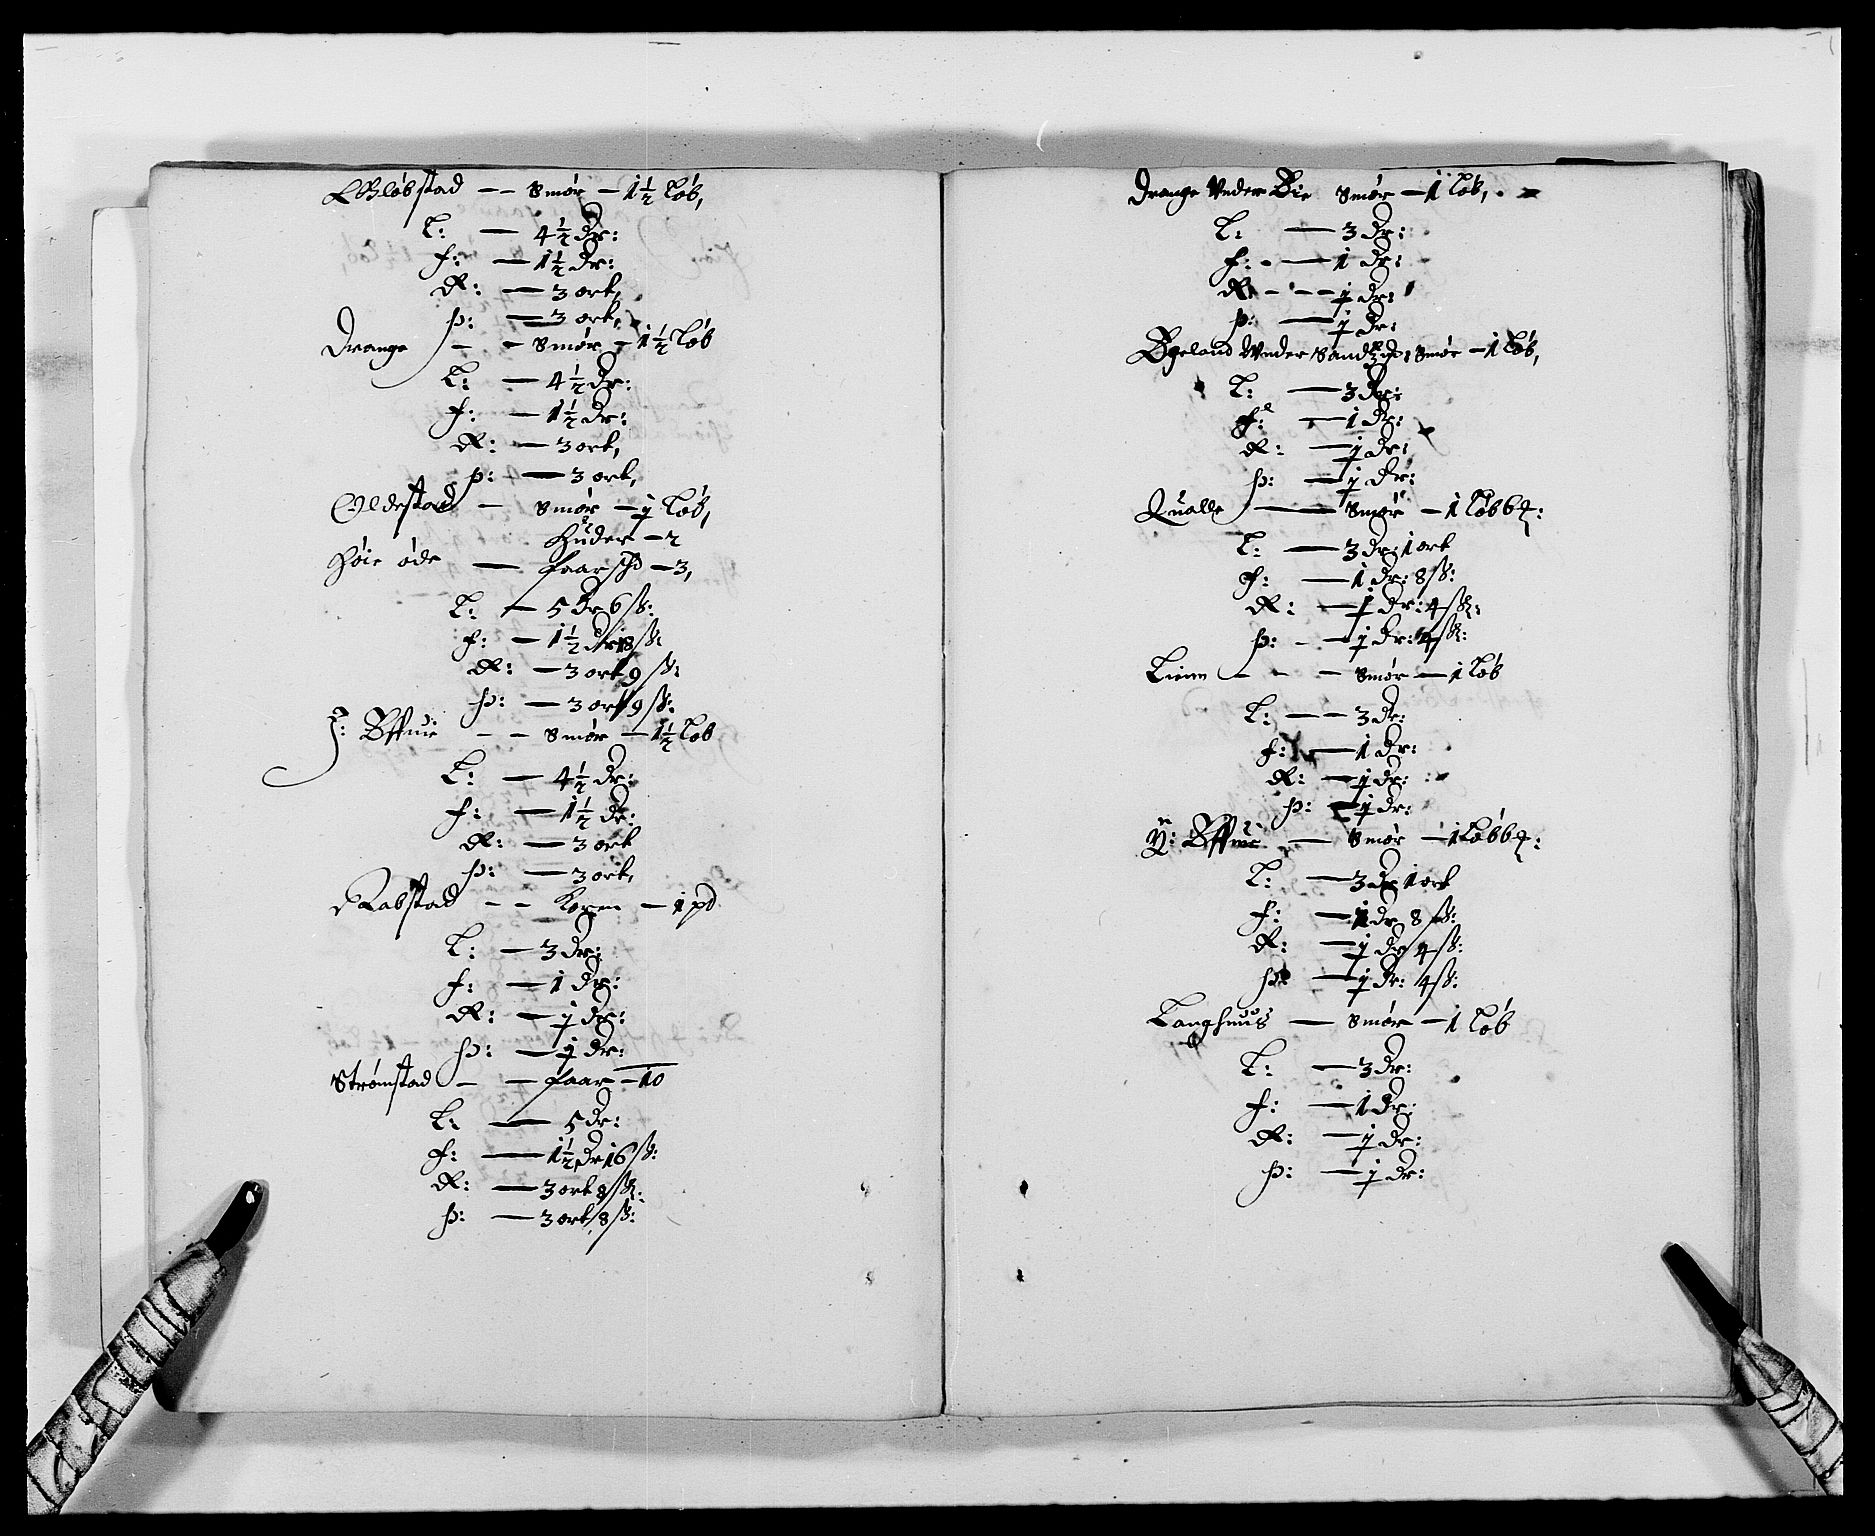 Smør – 1½ Løb,
L: – 4½ Dr:
f: – 1½ Dr:
R: – 3 ort,
Þ: – 3 ort,
Drange – – Smør – 1½ Løb
L: – 4½ Dr:
f: – 1½ Dr:
R: – 3 ort,
Þ: – 3 ort,
Oldestad – Smør – ½ Løb,
Huder – 2
Høie øde – faarschd – 3,
L: – 5 Dr 6 ß:
f: – 1½ Dr 18 ß:
R: – 3 ort 9 ß:
Þ: – 3 ort 9 ß:
– – Smør – 1½ Løb
L: – 4½ Dr:
f: – 1½ Dr:
R: – 3 ort
Þ: – 3 ort,
Rabstad – – Korn – 1 pd
L: – 3 Dr:
f: – 1 Dr:
R: – ½ Dr:
Þ: – ½ Dr:
Strømstad – – faar – 10
L: – 5 Dr:
f: – 1½ Dr 16 ß:
R: – 3 ort 8 ß:
Þ: – 3 ort 8 ß:
Drange Under Øie Smør – 1 Løb,
L: – 3 Dr:
f: – 1 Dr:
R: – – ½ Dr:
Þ: – ½ Dr:
Øgeland Under Smør – 1 Løb,
L: – 3 Dr:
f: – 1 Dr:
R: – ½ Dr:
Þ: – ½ Dr:
Qualle – Smør – 1 Løb
L: – 3 Dr: 1 ort
f: – 1 Dr: 8 ß:
R: – ½ Dr: 4 ß:
Þ: – – ½ Dr: 4 ß:
Liene – – – Smør – 1 Løb
L: – – 3 Dr:
f: – 1 Dr:
R: – ½ Dr:
Þ: – ½ Dr:
– Smør – 1 Løb
L: – 3 Dr 1 ort
f: – 1 Dr 8 ß:
R: – ½ Dr 4 ß:
Þ: – ½ Dr: 4 ß:
Langhuus – Smør – 1 Løb
L: – 3 Dr:
f: – 1 Dr:
R: – ½ Dr:
Þ: – ½ Dr: